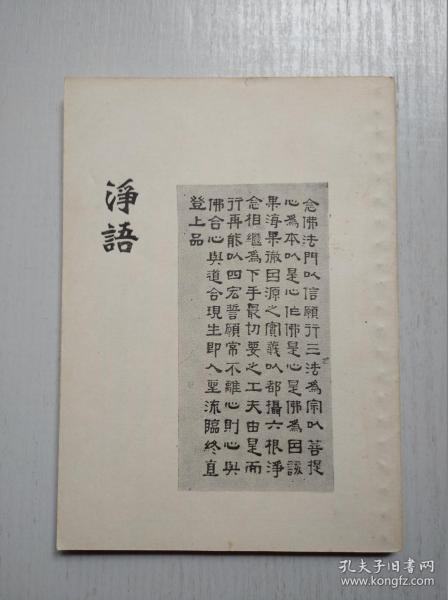 淨語
念佛法門以信願行三法為宗以菩提
心為本以是心作佛是心是佛為因該
果海果徹因源之實義以都攝六根淨
念相繼為下手最切要之工夫由是而
行再能以四宏誓願常不離心則心與
佛合心與道合現生即入聖流臨終直
登上品
孔夫子旧书网